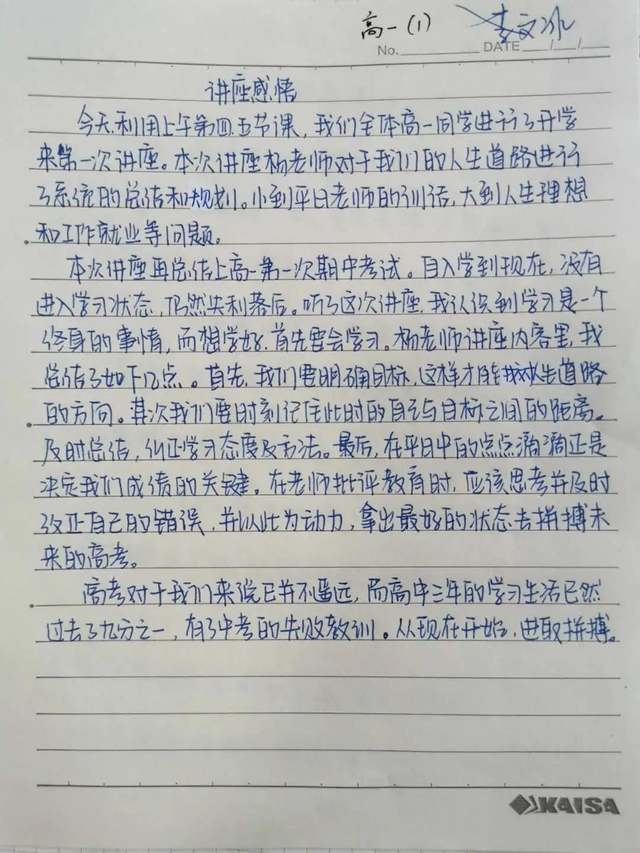 高一(1) 李文冰
No. DATE / /
讲座感悟
今天利用上午第四、五节课，我们全体高一同学进行了开学
来第一次讲座。本次讲座杨老师对于我们的人生道路进行
了系统的总结和规划。小到平日老师的训话，大到人生理想
和工作就业等问题。
本次讲座再总结上高一第一次期中考试。自入学到现在，没有
进入学习状态，仍然失利落后。听了这次讲座，我认识到学习是一个
终身的事情，而想学好，首先要会学习。杨老师讲座内容里，我
总结了如下几点。首先，我们要明确目标，这样才能 人生道路
的方向。其次我们要时刻记住此时的自己与目标之间的距离。
及时总结，纠正学习态度及方法。最后，在平日中的点点滴滴正是
决定我们成绩的关键。在老师批评教育时，应该思考并及时
改正自己的错误，并以此为动力，拿出最好的状态去拼搏未
来的高考。
高考对于我们来说已并不遥远，而高中三年的学习生活已然
过去了九分之一，有了中考的失败教训。从现在开始，进取拼搏。
KAISA